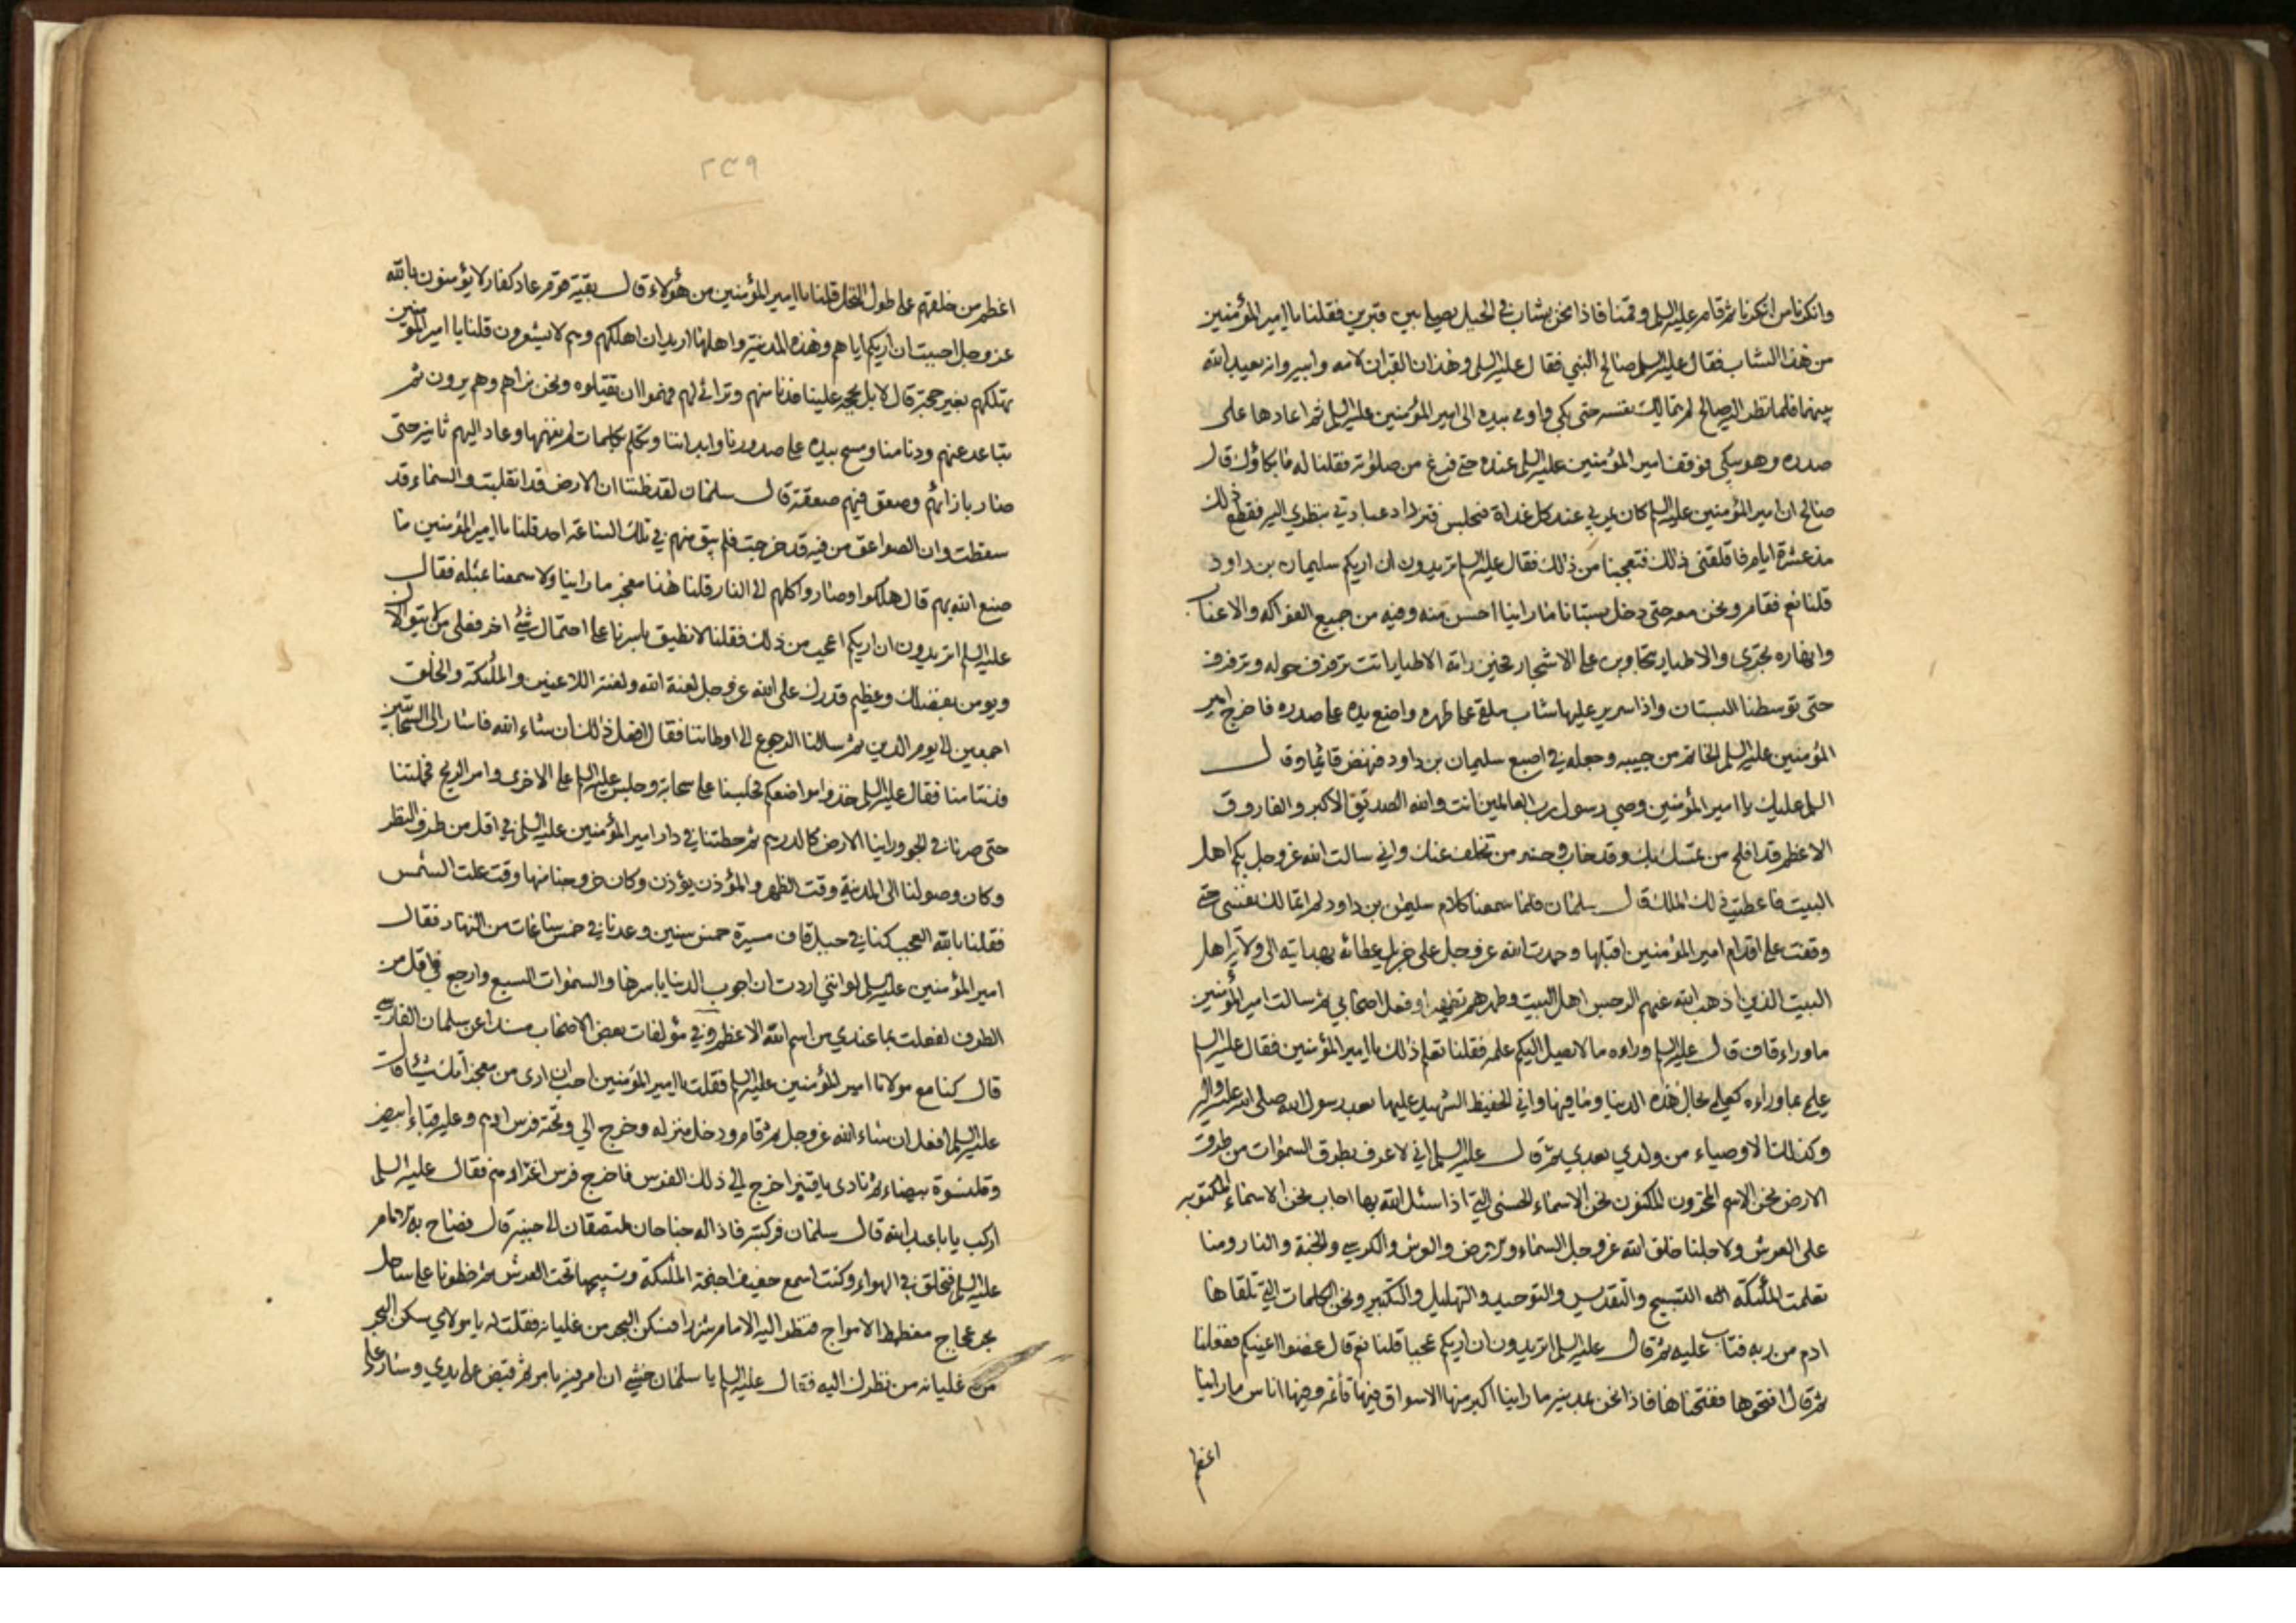 وانكرنا من انكرنا ثم قام عليه السلم وقمنا فاذا نحن بشاب في الجبل يصلي بين قبرين فقلنا يا امير المؤمنين
من هذا الشاب فقال عليه السلم صالح النبي فقال عليه السلم وهذان القبران لامه وابيه وانه يعبد الله
بينهما فلما نظر اليه صالح لم يتمالك نفسه حتى بكى واومى بيده الى امير المؤمنين عليه السلم ثم اعادها على
صدره وهو يبكي فوقف امير المؤمنين عليه السلم عنده حتى فرغ من صلوته فقلنا له ما بكاؤك قال
صالح ان امير المؤمنين عليه السلم كان يمر بي عند كل غداة فيجلس فتزداد عبادتي بنظري اليه فقطع ذلك
مذ عشرة ايام فاقلقني ذلك فتعجبنا من ذلك فقال عليه السلم تريدون ان اريكم سليمان بن داود
قلنا نعم فقام ونحن معه حتى دخل بستانا ما راينا احسن منه وفيه من جميع الفواكه والاعناب
وانهاره تجري والاطيار يتجاوبن على الاشجار فحين راته الاطيار اتت ترفرف حوله
حتى توسطنا البستان واذا سرير عليها شاب ملقى على ظهره واضع يده على صدره فاخرج امير
المؤمنين عليه السلم الخاتم من جيبه وجعله في اصبع سليمان بن داود فنهض قائما وقال
السلم عليك يا امير المؤمنين وصي رسول رب العالمين انت والله الصديق الاكبر والفاروق
الاعظم قد افلح من تمسك بك وقد خاب وخسر من تخلف عنك واني سالت الله عز وجل بكم اهل
البيت فاعطيت ذلك الملك قال سلمان فلما سمعنا كلام سليمن بن داود لم اتمالك نفسي حتى
وقعت على اقدام امير المؤمنين اقبلها وحمدت الله عز وجل على جزيل عطائه بهدايته الى ولاية اهل
البيت الذين اذهب الله عنهم الرجس اهل البيت وطهرهم تطهيرا وفعل اصحابي ثم سالت امير المؤمنين
ما وراء قاف قال عليه السلم وراءه ما لا يصل اليكم علمه فقلنا تعلم ذلك يا امير المؤمنين فقال عليه السلم
علمي بما وراءه كعلمي بحال هذه الدنيا وما فيها واني الحفيظ الشهيد عليها بعد رسول الله صلى الله عليه واله
وكذلك الاوصياء من ولدي بعدي ثم قال عليه السلم اني لاعرف بطرق السموات من طرق
الارض نحن الاسم المخزون المكنون نحن الاسماء الحسنى التي اذا سئل الله بها اجاب نحن الاسماء المكتوبة
على العرش ولاجلنا خلق الله عز وجل السماء والارض والعرش والكرسي والجنة والنار ومنا
تعلمت الملئكة التسبيح والتقديس والتوحيد والتهليل والتكبير ونحن الكلمات التي تلقاها
ادم من ربه فتاب عليه ثم قال عليه السلم اتريدون ان اريكم عجبا قلنا نعم قال غضوا اعينكم ففعلنا
ثم قال افتحوها ففتحناها فاذا نحن بمدينة ما راينا اكبر منها الاسواق فيها قائمة وفيها اناس ما راينا
اعظم
٢٣٩
اعظم من خلقتهم على طول النخل قلنا يا امير المؤمنين من هؤلاء قال بقية قوم عاد كفار لا يؤمنون بالله
عز وجل احببت ان اريكم اياهم وهذه المدينة واهلها اريد ان اهلكهم وهم لا يشعرون قلنا يا امير المؤمنين
تهلكهم بغير حجة قال لا بل بحجة علينا فدنا منهم وترائى لهم فهموا ان يقتلوه ونحن نراهم وهم يرون ثم
تباعد عنهم ودنا منا ومسح بيده على صدورنا وابداننا وتكلم بكلمات لم نفهمها وعاد اليهم ثانية حتى
صار بازائهم وصعق فيهم صعقة قال سلمان لقد ظننا ان الارض قد انقلبت والسماء قد
سقطت وان الصواعق من فيه قد خرجت فلم يبق منهم في تلك الساعة احد قلنا يا امير المؤمنين ما
صنع الله بهم قال هلكوا وصاروا كلهم الى النار قلنا هذا معجز ما راينا ولا سمعنا بمثله فقال
عليه السلم اتريدون ان اريكم اعجب من ذلك فقلنا لا نطيق باسرنا على احتمال شئ اخر فعلى من لا يتوالاك
ويومن بفضلك وعظيم قدرك على الله عز وجل لعنة الله ولعنة اللاعنين والملئكة والخلق
اجمعين الى يوم الدين ثم سالنا الرجوع الى اوطاننا فقال افعل ذلك ان شاء الله فاشار الى السحابتين
فدنتا منا فقال عليه السلم خذوا مواضعكم فجلسنا على سحابة وجلس عليه السلم على الاخرى وامر الريح فحملتنا
حتى صرنا في الجو وراينا الارض كالدرهم ثم حطتنا في دار امير المؤمنين عليه السلم في اقل من طرف النظر
وكان وصولنا الى المدينة وقت الظهر والمؤذن يؤذن وكان خروجنا منها وقت علت الشمس
فقلنا بالله العجب كنا في جبل قاف مسيرة خمس سنين وعدنا في خمس ساعات من النهار فقال
امير المؤمنين عليه السلم لو انني اردت ان اجوب الدنيا باسرها والسموات السبع وارجع في اقل من
الطرف لفعلت بما عندي من اسم الله الاعظم وفي مؤلفات بعض الاصحاب مسندا عن سلمان الفارسي
قال كنا مع مولانا امير المؤمنين عليه السلم فقلت يا امير المؤمنين احب ان ارى من معجزاتك شيئا قال
عليه السلم افعل ان شاء الله عز وجل ثم قام ودخل منزله وخرج الي وتحته فرس ادهم وعليه قباء ابيض
وقلنسوة بيضاء ثم نادى يا قنبر اخرج الي ذلك الفرس فاخرج فرس اغر ادهم فقال عليه السلم
اركب يا با عبد الله قال سلمان فركبته فاذا له جناحان ملتصقان الى جنبيه قال فصاح به الامام
عليه السلم فتحلق في الهواء وكنت اسمع حفيف اجنحة الملئكة وتسبيحها تحت العرش ثم خطونا على ساحل
بحر عجاج مغطمط الامواج فنظر اليه الامام شزرا فسكن البحر من غليانه فقلت له يا مولاي سكن البحر
من غليانه من نظرك اليه فقال عليه السلم يا سلمان خشي ان امر فيه بامر ثم قبض على يدي وسار على